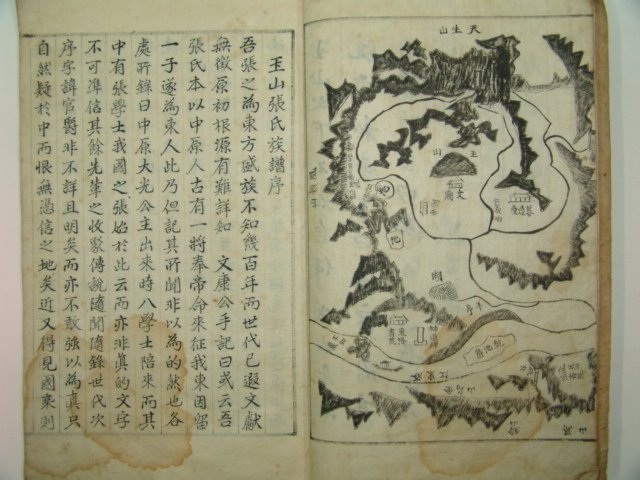 天生山
玉山張氏族譜序
吾張之為東方盛族不知幾百年而世代已遐文獻
無徵原初根源有難詳知 文康公手記曰或云吾
張氏本以中原人古有一將奉帝命來征我東因留
一子遂為東人此乃但記其所聞非以為的然也各
處所錄曰中原大光公主出來時八學士陪來而其
中有張學士我國之張始於此云而亦非真的文字
不可準信其餘先輩之收發傳說隨聞隨錄世代次
序字諱官爵非不詳且明矣而亦不敢強以為真只
自然疑於中而恨無憑信之地矣近又得見國乘則
玉山
文廟
池
洛東江